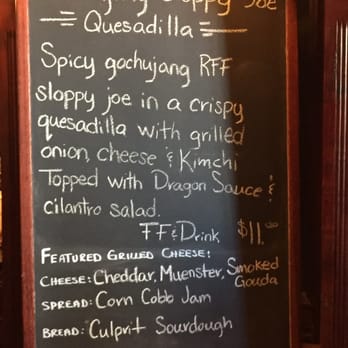 Sloppy Joe
Quesadilla
Spicy gochujang RFF
sloppy joe in a crispy
quesadilla with grilled
onion, cheese & Kimchi
Topped with Dragon Sauce &
cilantro salad.
FF & Drink $11.00
FEATURED GRILLED CHEESE:
CHEESE: Cheddar, Muenster, Smoked
Gouda
SPREAD: Corn Cobb Jam
BREAD: Culprit Sourdough